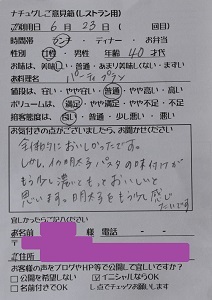 ナチュグしご意見箱(レストラン用)
ご利用日 6月23日( 回目)
時間帯 ランチ・ティー・お弁当
性別 女性・男性 年齢 40才代
お味は、美味しい・普通・あまり美味しくない・まずい
お料理名 パーティプラン
値段は、安い・やや安い・普通・やや高い・高い
ボリュームは、満足・やや満足・普通・やや不足・不足
接客態度は、良い・普通・少し悪い・悪い
お気付きの点がございましたら、お聞かせください
全体的においしかったです。
しかし、イカ明太子パスタの味付けが
もう少し濃くてもっておいしいと
思います。明太子をもう少し感じ
たいです
宜しかったらご記入ください
お名前 様 電話 - -
ご住所
お客様の声をブログやHP等で公開して宜しいですか?
□公開を希望しない ☑イニシャルならOK
□名前付きでOK し点でチェックお願いします